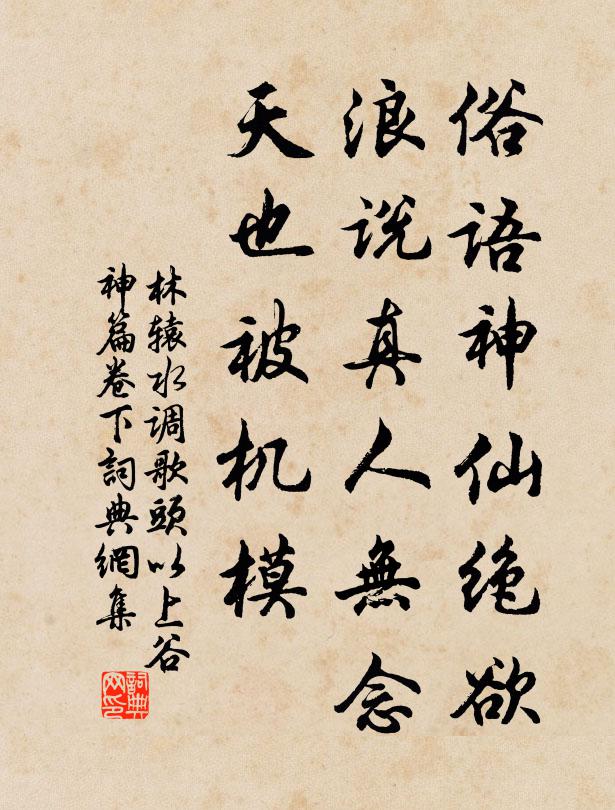 俗语神仙绝欲
浪说真人無念
天也被机模
林辕水调歌頭以上谷
神篇卷下詞典網集
詞典
网印